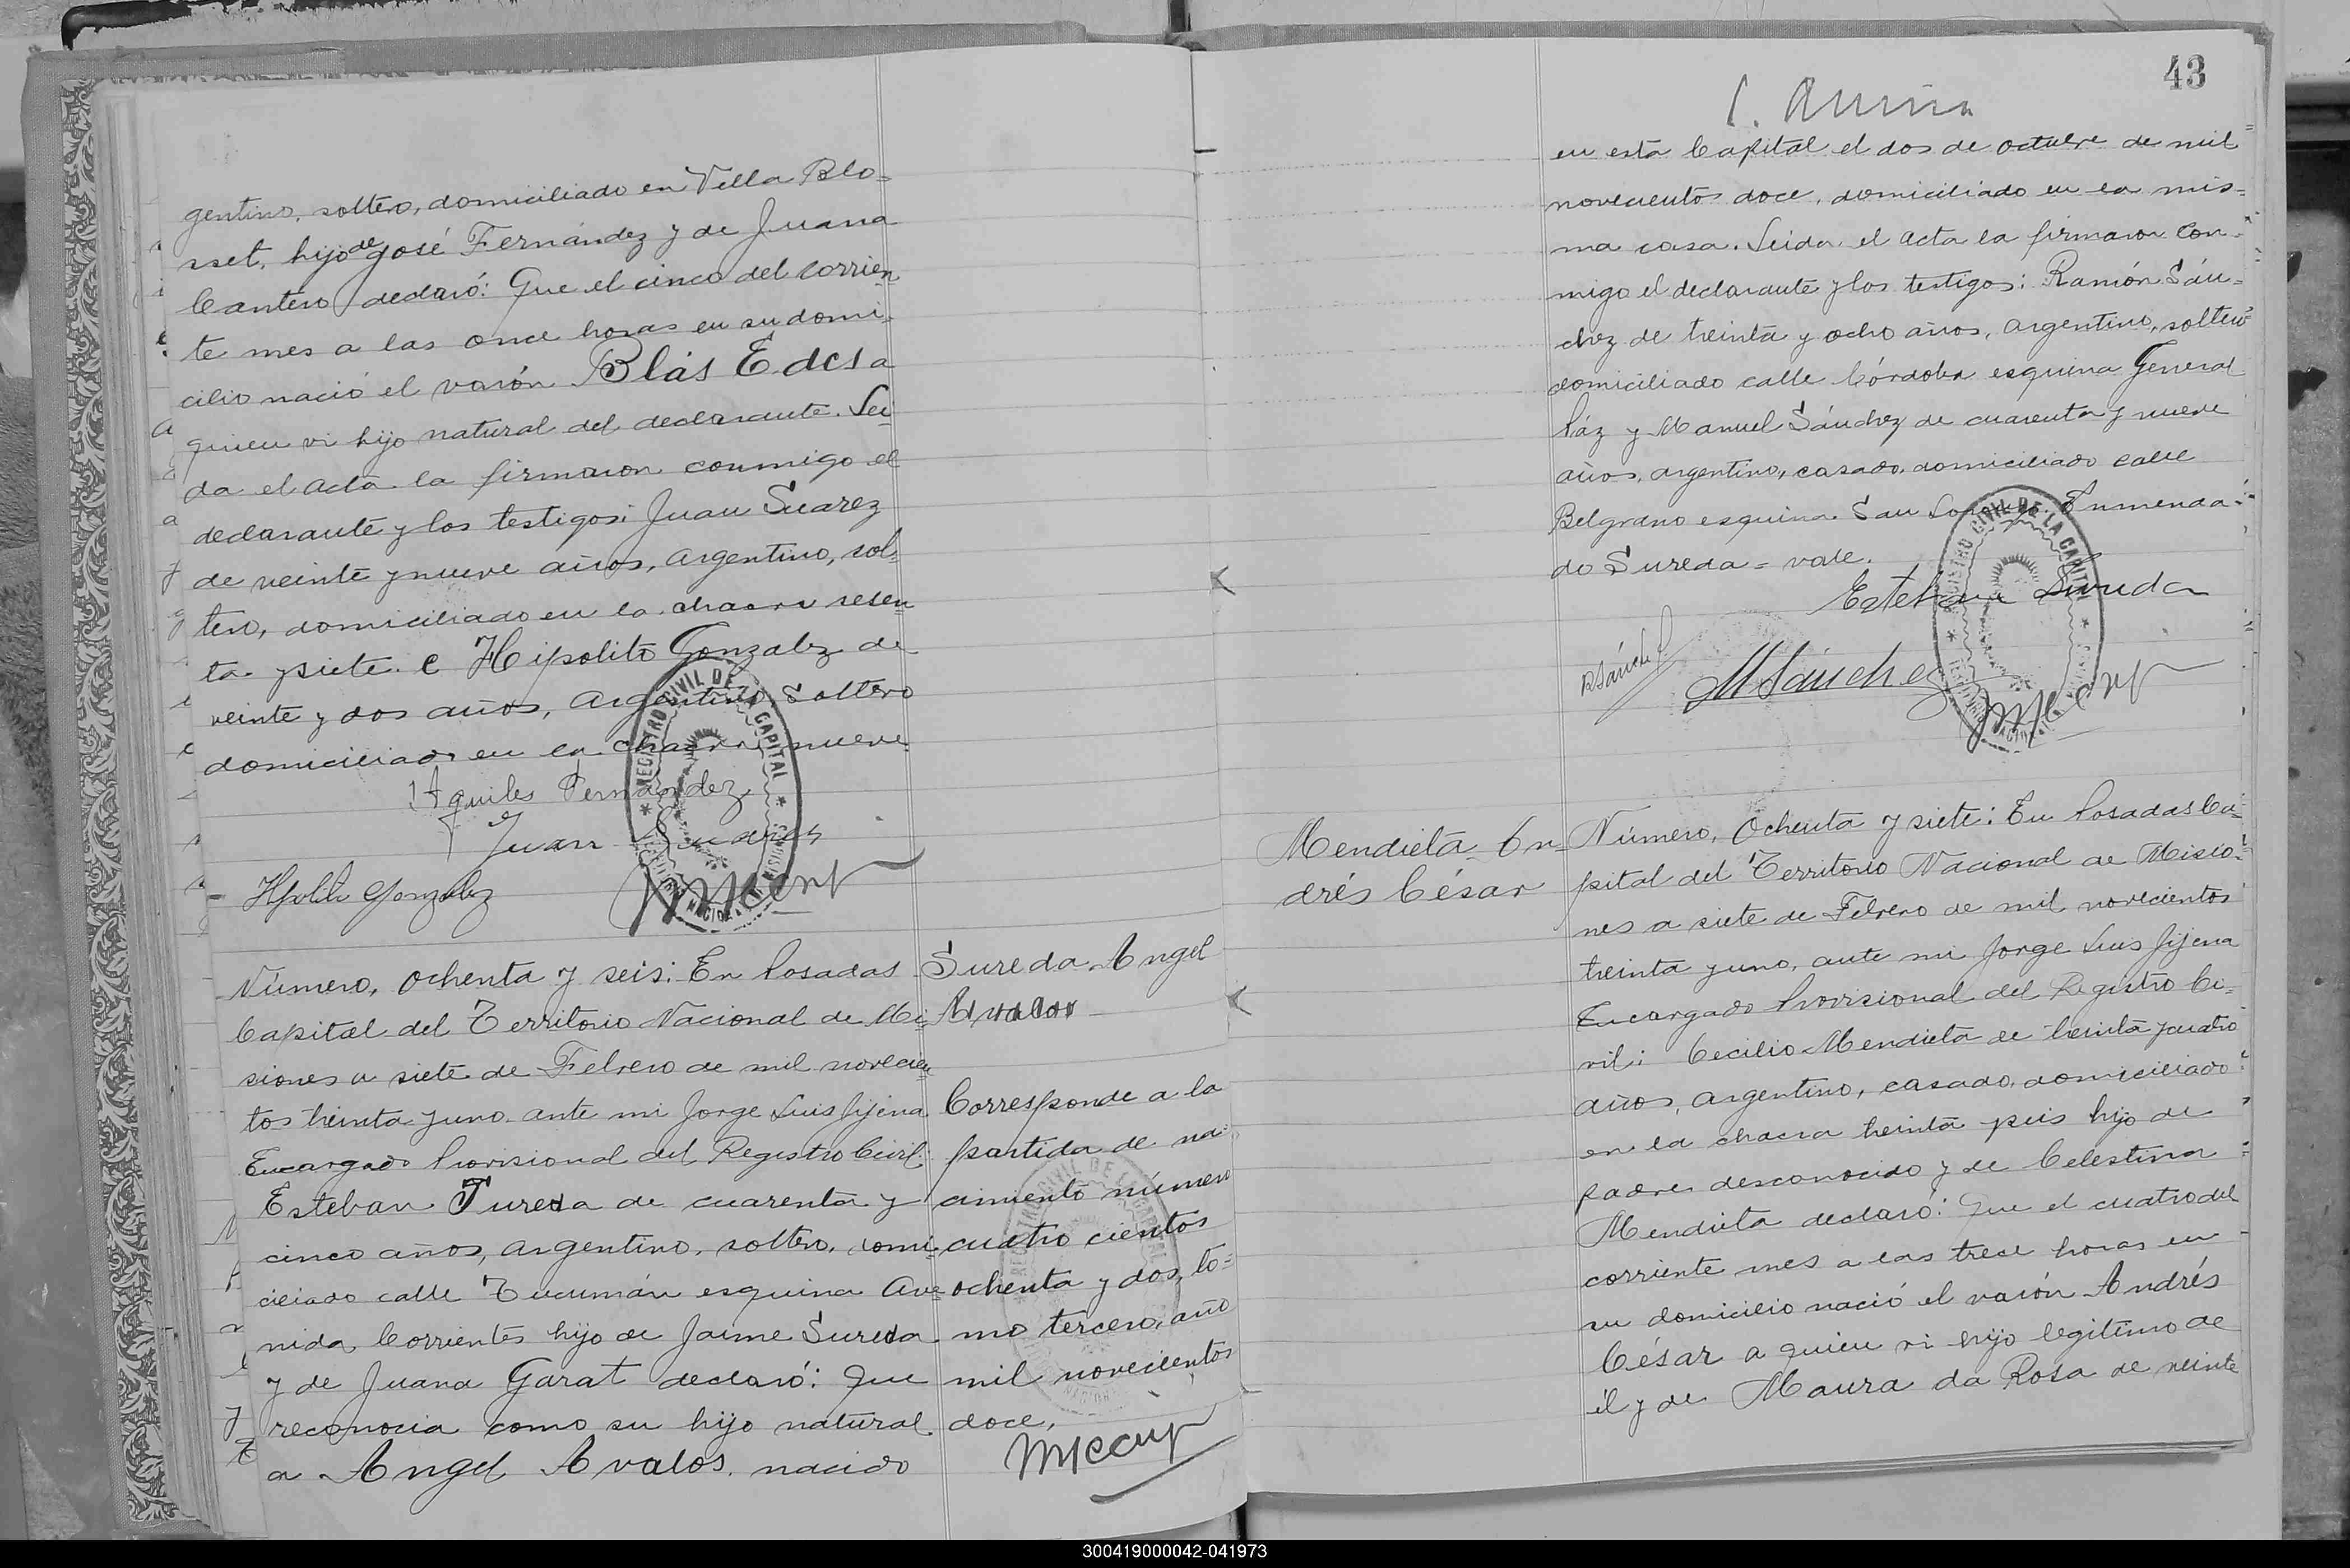 gentino, soltero, domiciliado en Villa Blo=
sset, hijo de José Fernández y de Juana
Cantero declaró: Que el cinco del corrien
te mes a las once horas en su domi=
cilio nació el varón Blás Edesa
quien vi hijo natural del declarante. Lei
da el acta la firmaron conmigo el
declarante y los testigos: Juan Suarez
de veinte y nueve años, argentino, sol=
tero, domiciliado en la chacra sesen
ta y siete e Hipolito Gonzalez de
veinte y dos años, argentino, soltero
domiciliado en la chacra nueve
Aquiles Fernandez
Juan Suarez
Hpolito Gonzalez
REGISTRO CIVIL DE LA CAPITAL
Número, ochenta y seis: En Posadas
Capital del Territorio Nacional de Mi=
siones a siete de Febrero de mil novecien
tos treinta y uno. ante mi Jorge Luis Jijena
Encargado Provisional del Registro Civil:
Esteban Sureda de cuarenta y
cinco años, argentino, soltero, domi=
ciliado calle Tucumán esquina Ave=
nida Corrientes hijo de Jaime Sureda
y de Juana Garat declaró: Que
reconocia como su hijo natural
a Angel Avalos, nacido
Sureda Angel
Corresponde a la
partida de na=
cimiento número
cuatro cientos
ochenta y dos, to=
mo tercero, año
mil novecientos
doce,
43
en esta Capital el dos de octubre de mil
novecientos doce, domiciliado en la mis=
ma casa. Leida el acta la firmaron con=
migo el declarante y los testigos: Ramón Sán=
chez de treinta y ocho años, argentino, soltero
domiciliado calle Córdoba esquina General
Páz y Manuel Sánchez de cuarenta y nueve
años, argentino, casado, domiciliado calle
Belgrano esquina San Lorenzo. Enmenda=
do Sureda = vale.
Esteban Sureda
RSánchez
MSánchez
REGISTRO CIVIL DE LA CAPITAL
Mendieta An=
drés César
Número, Ochenta y siete: En Posadas Ca=
pital del Territorio Nacional de Misio=
nes a siete de Febrero de mil novecientos
treinta y uno, ante mi Jorge Luis Jijena
Encargado Provisional del Registro Ci=
vil: Cecilio Mendieta de treinta y cuatro
años, argentino, casado, domiciliado
en la chacra treinta y seis hijo de
padre desconocido y de Celestina
Mendieta declaró: Que el cuatro del
corriente mes a las trece horas en
su domicilio nació el varón Andrés
César a quien vi hijo legitimo de
él y de Maura da Rosa de veinte
300419000042-041973